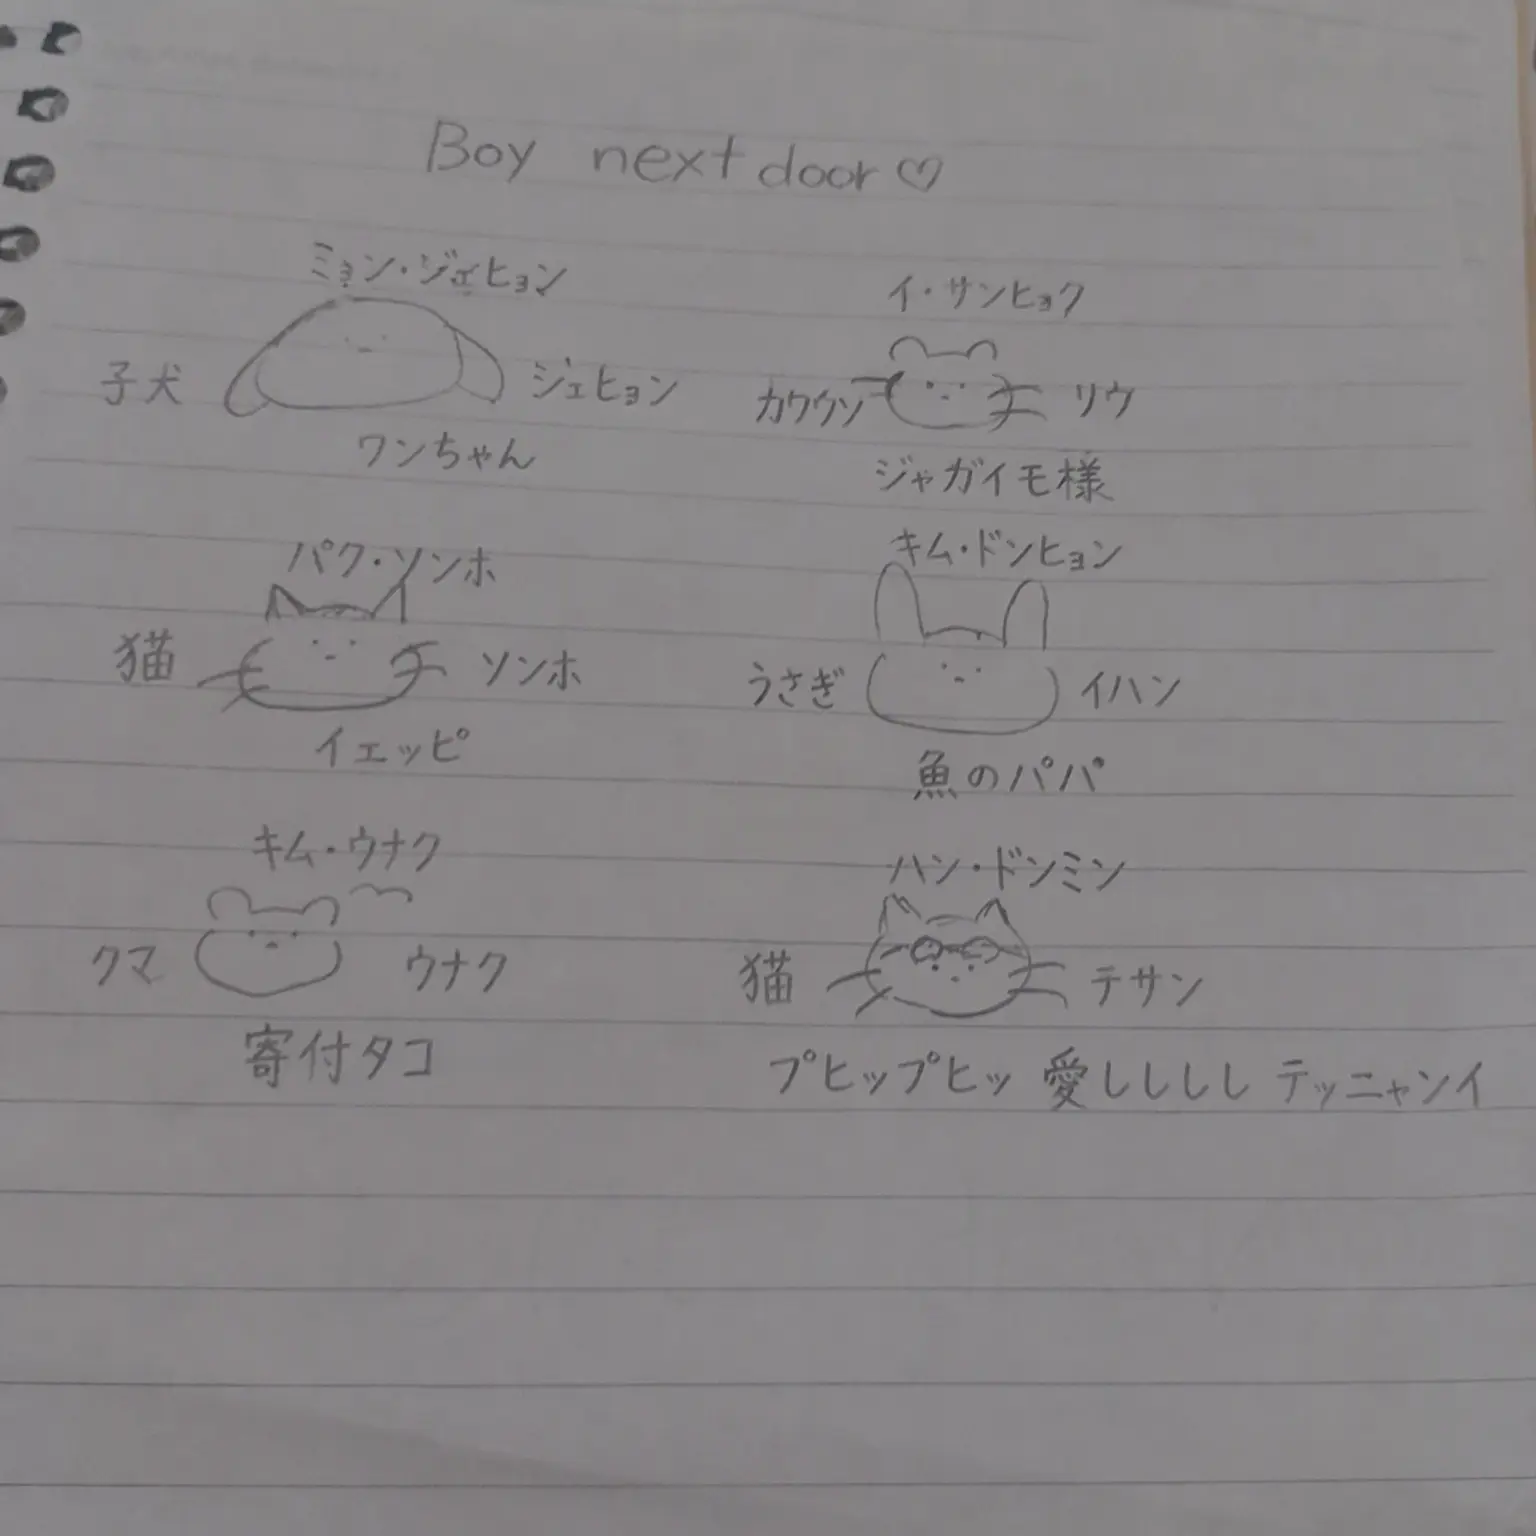 Boy next door♡
ミョン・ジェヒョン
子犬 ジェヒョン
ワンちゃん
イ・サンヒョク
カワウソ リウ
ジャガイモ様
パク・ソンホ
猫 ソンホ
イェッピ
キム・ドンヒョン
うさぎ イハン
魚のパパ
キム・ウナク
クマ ウナク
寄付タコ
ハン・ドンミン
猫 テサン
プヒップヒッ 愛しししし テッニャンイ